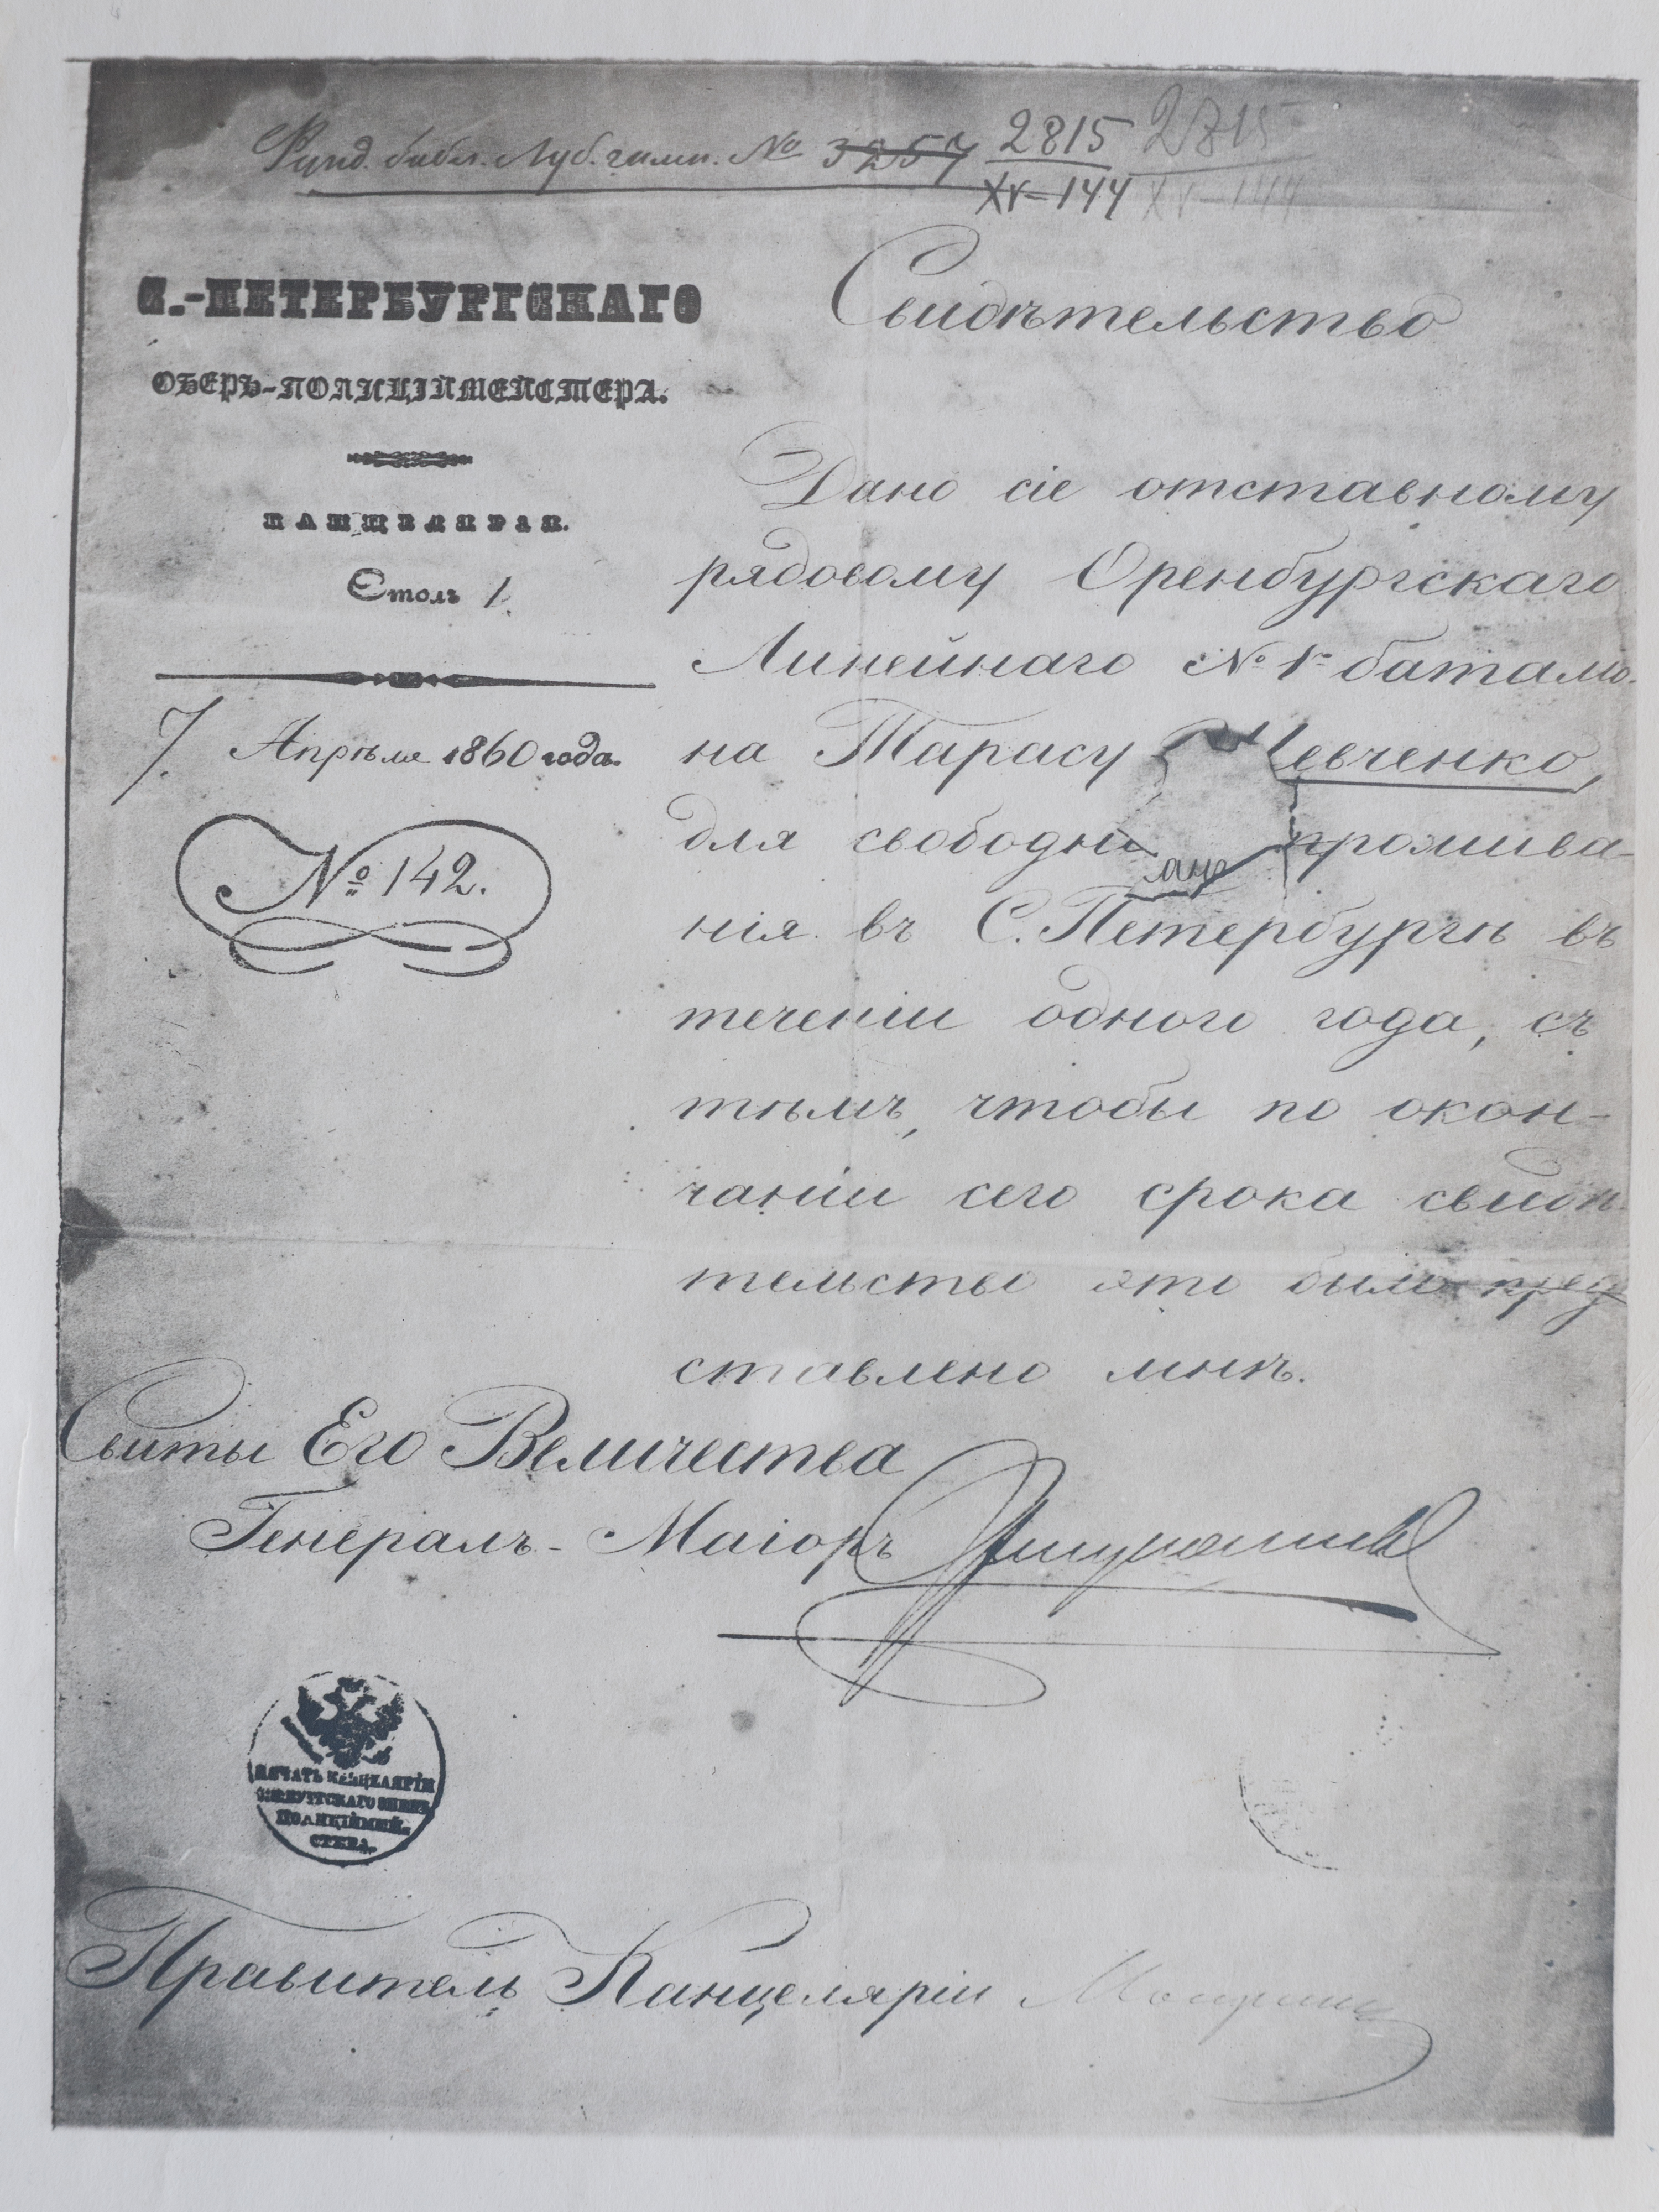 Фунд. библ. Луб. гимн. № 3257 2815 2815
XV-144 XV-144
С.-ПЕТЕРБУРГСКАГО
ОБЕРЪ-ПОЛИЦІЙМЕЙСТЕРА.
КАНЦЕЛЯРІЯ.
Столъ 1.
7. Апрѣля 1860 года.
№ 142.
Свидѣтельство
Дано сіе отставному
рядовому Оренбургскаго
Линейнаго № 1го баталіо-
на Тарасу Шевченко,
для свободн прожива-
нія въ С. Петербургѣ въ
теченіи одного года, съ
тѣмъ, чтобы по окон-
чаніи сего срока свидѣ-
тельство это было пред
ставлено мнѣ.
Свиты Его Величества
Генералъ-Маіоръ
ПЕЧАТЬ КАНЦЕЛЯРІИ
ПОЛИЦІЙМЕЙ-
СТЕРА.
Правитель Канцеляріи